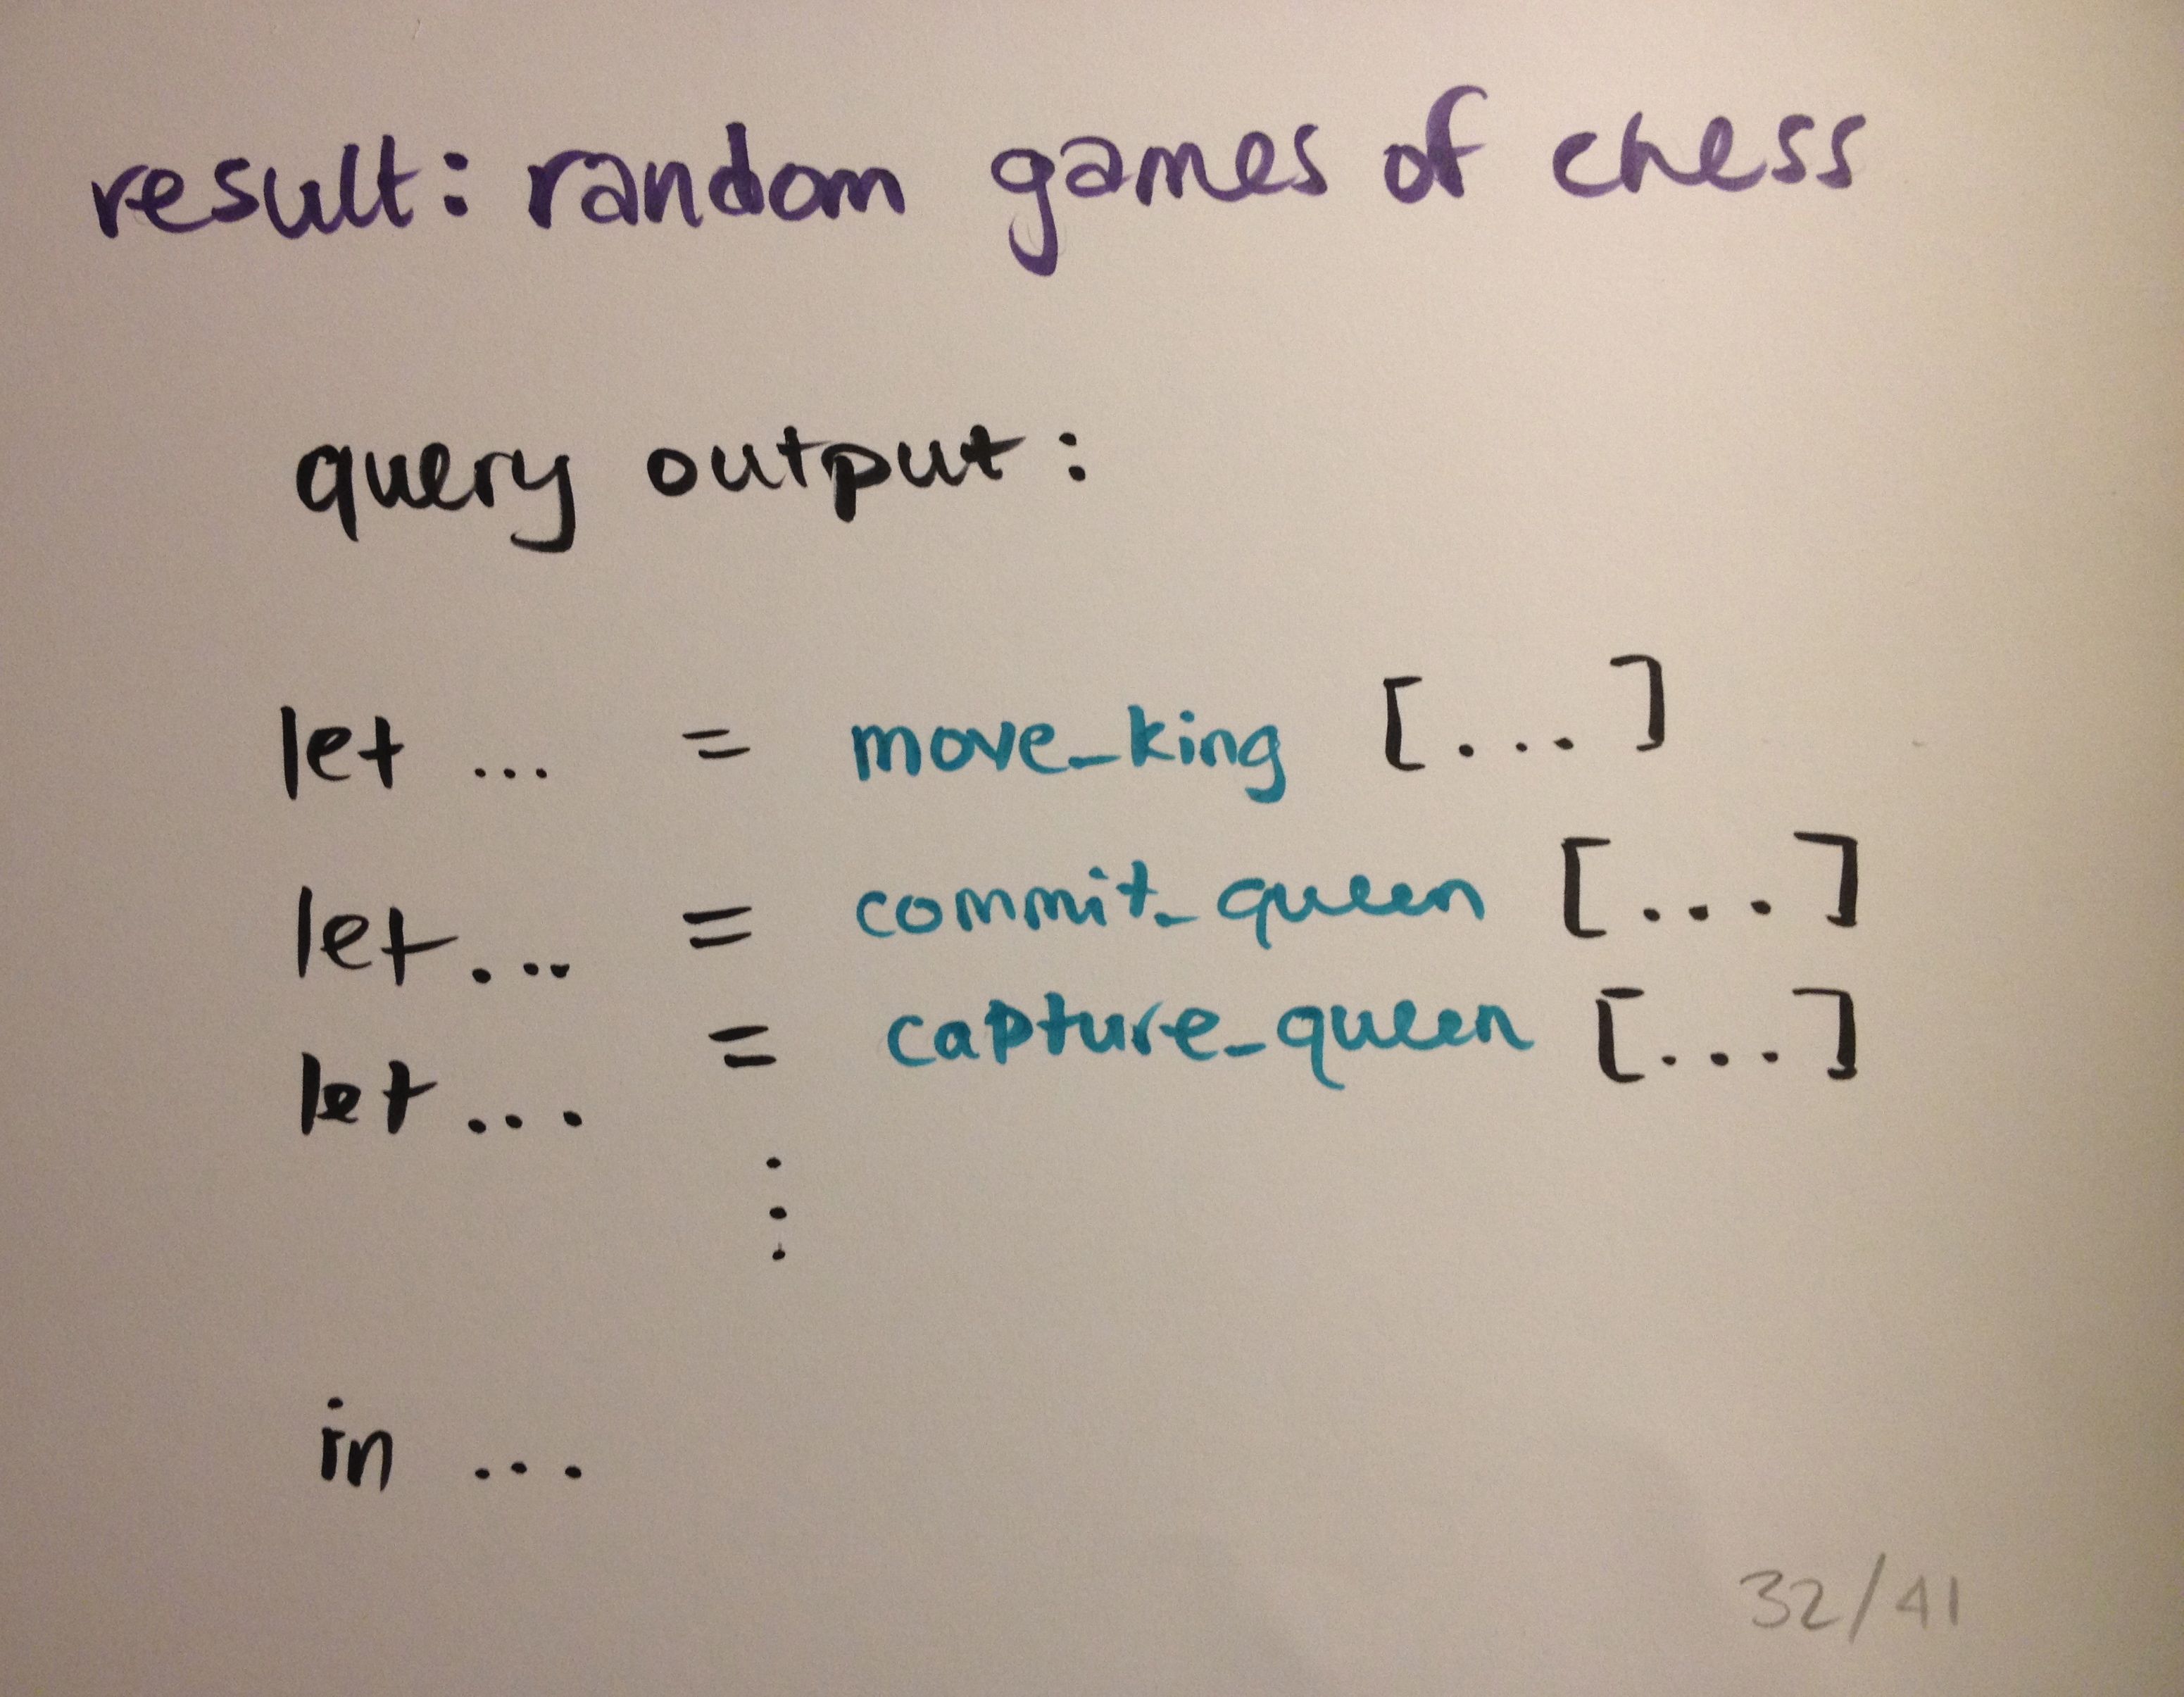 result: random games of chess
query output:
let ... = move_king [...]
let... = commit_queen [...]
let... = capture_queen [...]
⋮
in ...
32/41